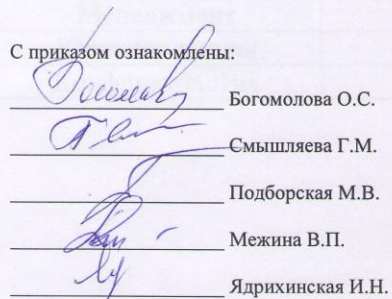 С приказом ознакомлены:
Богомолова О.С.
Смышляева Г.М.
Подборская М.В.
Межина В.П.
Ядрихинская И.Н.